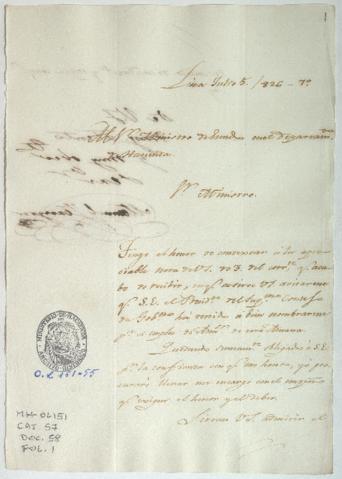 1
Lima Julio 5. /826 – 7º
Al Sr Ministro de Estado en el Departamto
Hacienda.
Sr Ministro.
Tengo el honor de contestar á la apre-
ciable nota de V.S. de 3. del corrte qe aca-
bo de recibir, en qe se sirve V.S. avisarme
qe S.E. el Presidte del Supmo Consejo
de Gobno ha tenido á bien nombrarme
pa el empleo de de esta Aduana.
Quedando sumamte obligado á S.E.
pr la confianza con qe me honra, yo pro-
curaré llenar mi encargo con el empeño
qe exigen el honor y el deber.
Sirvase V.S. admitir el
MINISTERIO DE HACIENDA
O.L. 151-55
MH-OL151
CAJ. 57
DOC. 58
FOL. 1